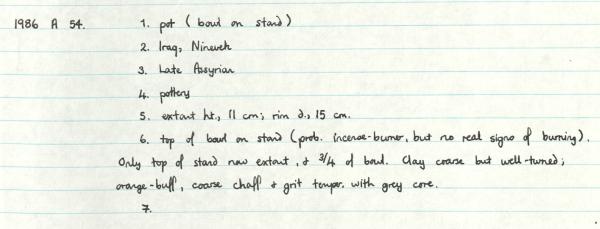 1986 A 54. 1. pot (bowl on stand)
2. Iraq, Nineveh
3. Late Assyrian
4. pottery
5. extant ht., 11 cm; rim d., 15 cm.
6. top of bowl on stand (prob. incense-burner, but no real signs of burning).
Only top of stand now extant, & 3/4 of bowl. Clay coarse but well-turned;
orange-buff, coarse chaff & grit temper. with grey core.
7.